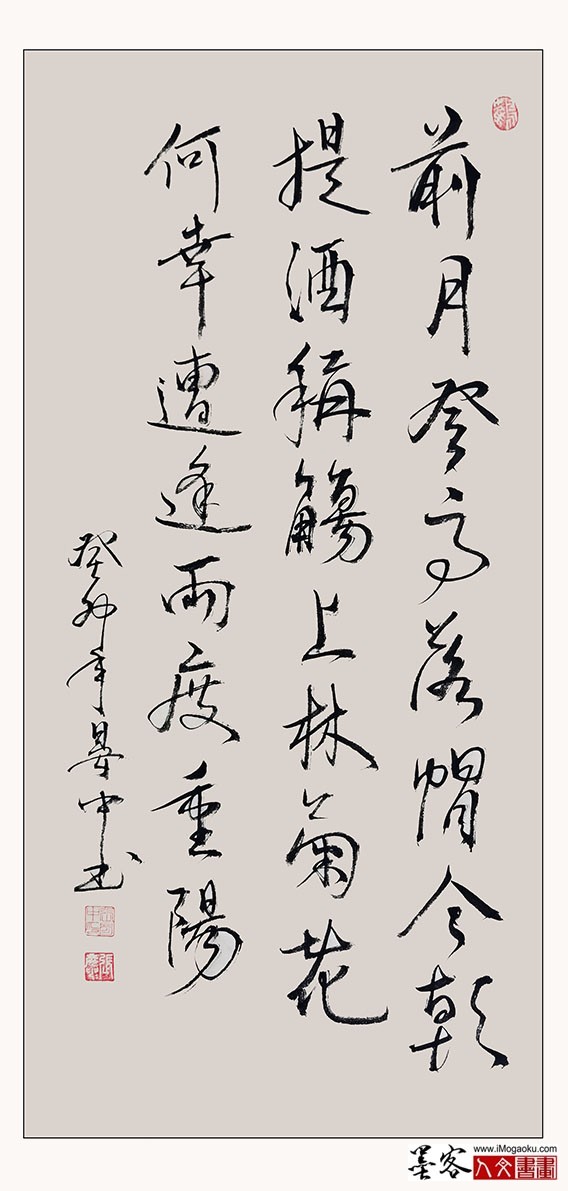 前月登高落帽今朝
提酒稱觴上林菊花
何幸遭逢兩度重陽
癸卯年中书
墨客
www.iMogaoku.com
人文書畫